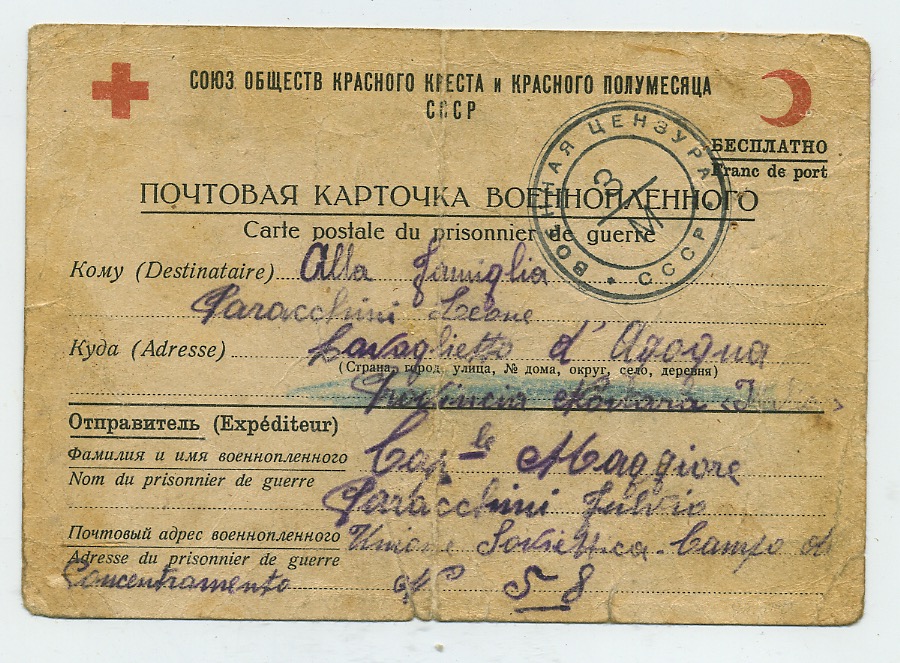 СОЮЗ ОБЩЕСТВ КРАСНОГО КРЕСТА и КРАСНОГО ПОЛУМЕСЯЦА
СССР
ВОЕННАЯ ЦЕНЗУРА СССР
3
М
БЕСПЛАТНО
Franc de port
ПОЧТОВАЯ КАРТОЧКА ВОЕННОПЛЕННОГО
Carte postale du prisonnier de guerre
Кому (Destinataire) Alla Famiglia
Paracchini Leone
Куда (Adresse) Cavaglietto d' Agogna
(Страна, город, улица, № дома, округ, село, деревня)
Provincia Novara
Отправитель (Expéditeur)
Фамилия и имя военнопленного Cap le Maggiore
Nom du prisonnier de guerre
Paracchini Fulvio
Почтовый адрес военнопленного Unione Sovietica. Campo di
Adresse du prisonnier de guerre
Concentramento N° 58